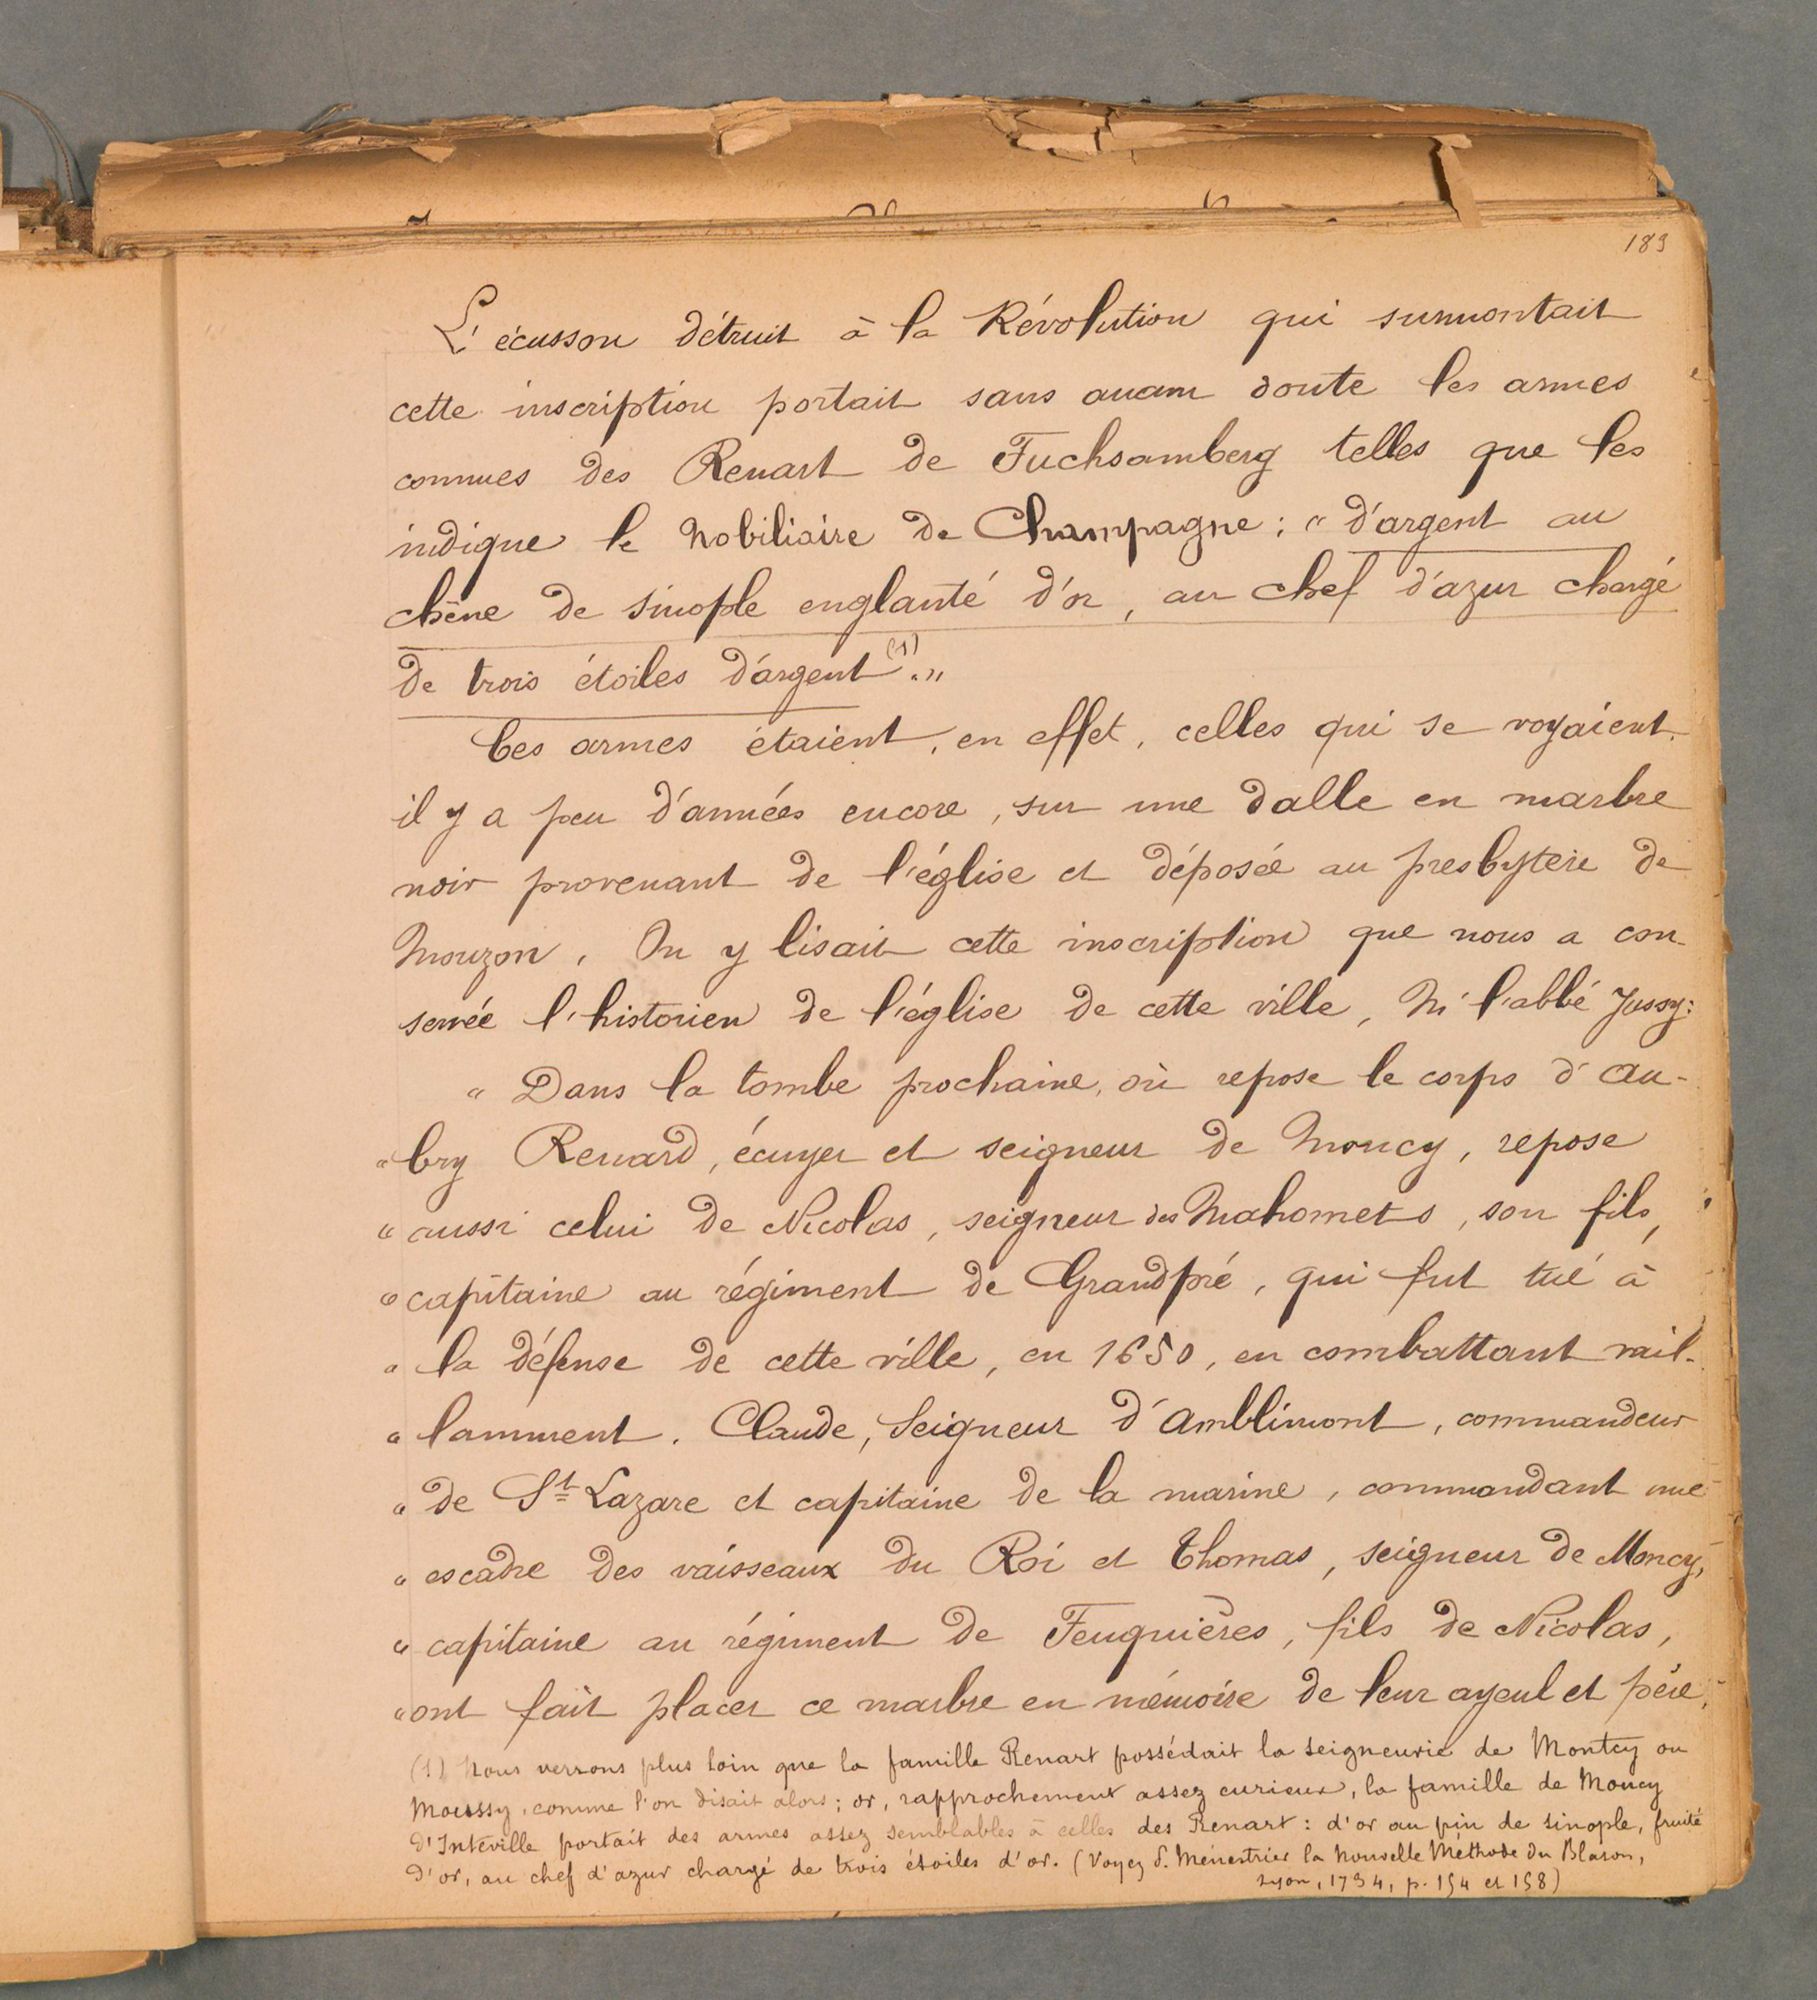 189
L'écusson détruit à la Révolution qui surmontait
cette inscription portait sans aucun doute les armes
connues des Renart de Fuchsamberg telles que les
indique le Nobiliaire de Champagne : " d'argent au
chêne de sinople englanté d'or, au chef d'azur chargé
de trois étoiles d'argent (1). "
Ces armes étaient, en effet, celles qui se voyaient,
il y a peu d'années encore, sur une dalle en marbre
noir provenant de l'église et déposée au presbytère de
Mouzon. On y lisait cette inscription que nous a con-
servée l'historien de l'église de cette ville, M. l'abbé Jussy :
" Dans la tombe prochaine, où repose le corps d'Au-
" bry Renard, écuyer et seigneur de Moncy, repose
" aussi celui de Nicolas, seigneur des Mahomets, son fils,
" capitaine au régiment de Grandpré, qui fut tué à
" la défense de cette ville, en 1650, en combattant vail-
" lamment. Claude, Seigneur d'Amblimont, commandeur
" de St Lazare et capitaine de la marine, commandant une
" escadre des vaisseaux du Roi et Thomas, seigneur de Moncy,
" capitaine au régiment de Feuquières, fils de Nicolas,
" ont fait placer ce marbre en mémoire de leur ayeul et père.
(1) Nous verrons plus loin que la famille Renart possédait la seigneurie de Montcy ou
comme l'on disait alors ; or, rapprochement assez curieux, la famille de Moucy
d'Inteville portait des armes assez semblables à celles des Renart : d'or au pin de sinople, fruité
d'or, au chef d'azur chargé de trois étoiles d'or. (Voyez P. Ménestrier la Nouvelle Méthode du Blason,
Lyon, 1734, p. 154 et 158)